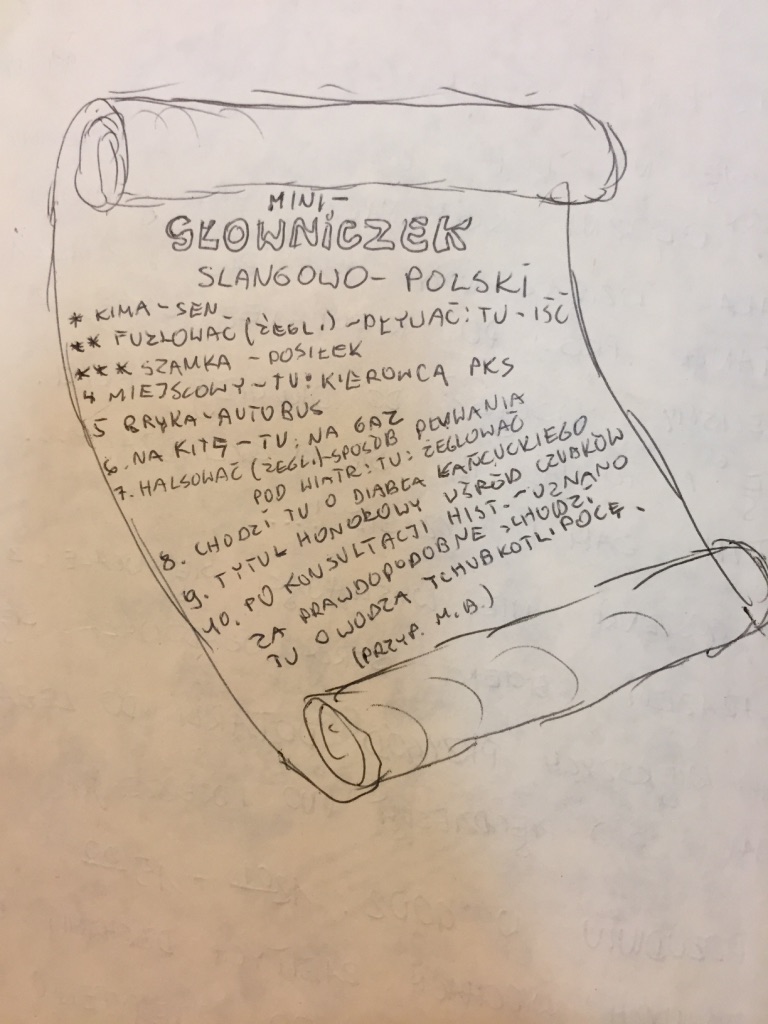 MINI-
SŁOWNICZEK
SLANGOWO-POLSKI
* KIMA-SEN
** FUZLOWAĆ (ŻEGL.) - PŁYWAĆ: TU - IŚĆ
*** SZAMKA - POSIŁEK
4 MIEJSCOWY - TU: KIEROWCA PKS
5 BRYKA-AUTOBUS
6. NA KITĘ - TU: NA GAZ
7. HALSOWAĆ (ŻEGL.)-SPOSÓB PŁYWANIA
POD WIATR: TU: ŻEGLOWAĆ
8. CHODZI TU O DIABŁA ŁAŃCUCKIEGO
9. TYTUŁ HONOROWY WŚRÓD CZUBKÓW
10. PO KONSULTACJI HIST. - UZNANO
ZA PRAWDOPODOBNE :CHODZI
TU O WODZA TCHUBKOTLIPOCĘ.
(PRZYP. M.B.)